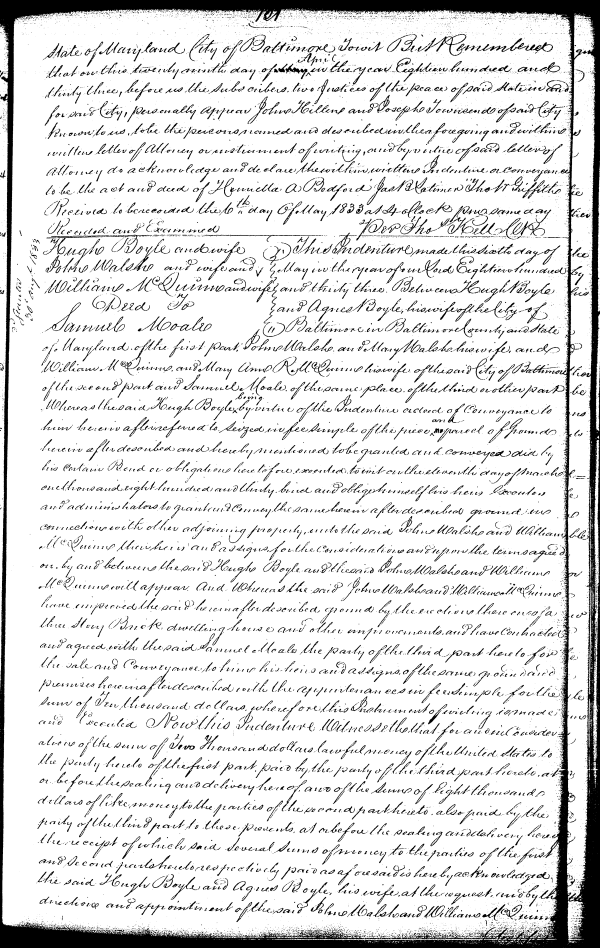 101
State of Maryland City of Baltimore Towit Be it Remembered
that on this twenty ninth day of April in the year Eighteen hundred and
thirty three, before us the subscribers two Justices of the peace of said state in and
for said City, personally appear John Hillen and Joseph Townsend of said City
known to us, to be the persons named and described in the foregoing and within
written letter of Attorney or instrument of writing, and by virtue of said letter of
Attorney do acknowledge and declare the within written Indenture or conveyance
to be the act and deed of Henrietta A. Bedford Jas B Latimer Tho W Griffith
Received to be recorded the 6th day of May 1833 at 4 oClock pm same day
Recorded and Examined Per Tho Kell Clk
Hugh Boyle and wife This Indenture made this sixth day of
John Walsh and wife and May in the year of our Lord Eighteen hundred
William McQuinn and wife and thirty three. Between Hugh Boyle
Deed To and Agnes Boyle, his wife of the City of
Samuel Moale Baltimore in Baltimore County and State
of Maryland of the first part, John Walsh, and Mary Walsh his wife, and
William McQuinn, and Mary Ann R. McQuinn his wife of the said City of Baltimore
of the second part and Samuel Moale of the same place of the third or other part
Whereas the said Hugh Boyle, being by virtue of the Indenture or deed of Conveyance to
him herein after referred to, seized in fee simple of the piece and parcel of Ground
herein after described and hereby mentioned to be granted and conveyed did by
his certain Bond or obligations heretofore executed to wit on the eleventh day of March
one thousand eight hundred and thirty, bind and oblige himself his heirs Executors
and administrators to grant and Convey the same herein after described ground in
connection with other adjoining property, unto the said John Walsh and William
McQuinn their heirs and assigns for the considerations and upon the terms agreed
on, by and between the said Hugh Boyle and the said John Walsh and William
McQuinn will appear. And Whereas the said John Walsh and William McQuinn
have improved the said herein after described ground by the erection thereon of a
three story Brick dwelling house and other improvements, and have Contracted
and agreed with the said Samuel Moale the party of the third part hereto for
the sale and Conveyance, to him his heirs and assigns of the same ground and
premises herein after described with the appurtenances in fee simple for the
sum of Ten thousand dollars, wherefore this Instrument of writing is made
and Executed Now this Indenture Witnesseth that for and in Consider=
ation of the sum of Two Thousand dollars lawful money of the United States to
the party hereto of the first part, paid by the party of the third part hereto, at
or before the sealing and delivery hereof and of the sum of Eight thousand
dollars of like money to the parties of the second part hereto also paid by the
party of the third part to these presents, at or before the sealing and delivery hereof
the receipt of which said several sums of money to the parties of the first
and second parts hereto respectively paid as aforesaid is hereby acknowledged
the said Hugh Boyle and Agnes Boyle, his wife, at the request, and by the
direction and appointment of the said John Walsh and William McQuinn